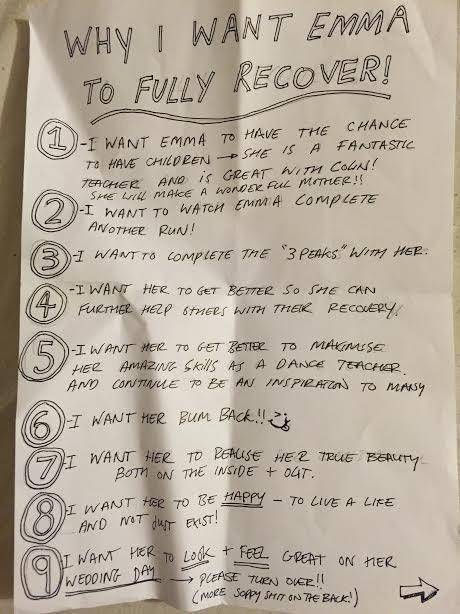 WHY I WANT EMMA
TO FULLY RECOVER!
1 - I WANT EMMA TO HAVE THE CHANCE
TO HAVE CHILDREN → SHE IS A FANTASTIC
TEACHER AND IS GREAT WITH COLIN!
SHE WILL MAKE A WONDERFUL MOTHER!!
2 - I WANT TO WATCH EMMA COMPLETE
ANOTHER RUN!
3 - I WANT TO COMPLETE THE "3 PEAKS" WITH HER.
4 - I WANT HER TO GET BETTER SO SHE CAN
FURTHER HELP OTHERS WITH THEIR RECOVERY.
5 - I WANT HER TO GET BETTER TO MAXIMISE
HER AMAZING SKILLS AS A DANCE TEACHER.
AND CONTINUE TO BE AN INSPIRATION TO MANY
6 - I WANT HER BUM BACK!!
7 - I WANT HER TO REALISE HER TRUE BEAUTY
BOTH ON THE INSIDE + OUT.
8 - I WANT HER TO BE HAPPY - TO LIVE A LIFE
AND NOT JUST EXIST!
9 I WANT HER TO LOOK + FEEL GREAT ON HER
WEDDING DAY → PLEASE TURN OVER!!
(MORE SOPPY SHIT ON THE BACK!)